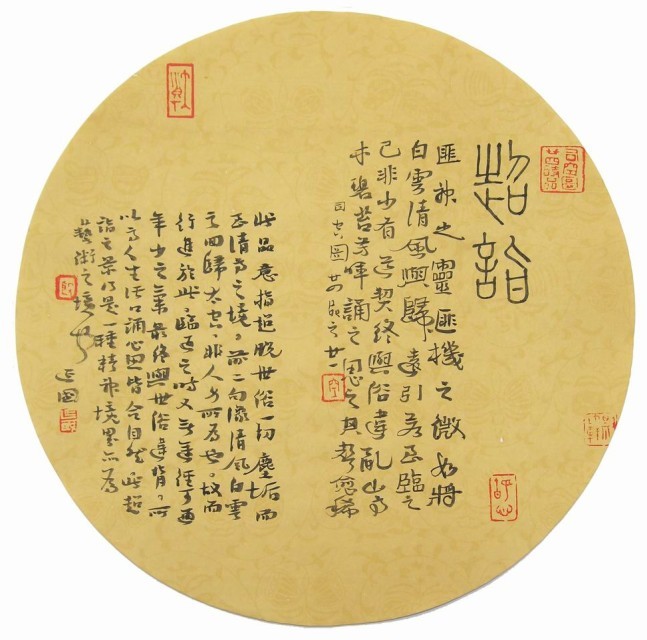 司空圖廿四詩品
超詣
匪神之靈匪機之微如將
白雲清風與歸遠引若至臨之
已非少有道契終與俗違亂山高
木碧苔芳暉誦之思之其聲愈稀
司空圖廿四品之廿一
此品意指超脫世俗一切塵垢而
至清高之境，前二句像清風白雲
之回歸太空，非人力所為也，故而
行進於此，臨近之時又無蹊徑可通
年少之 最終與世俗違背，所
以高人生活口誦心思皆合自然此超
詣之 乃是一種精神境界亦為
藝術之境也